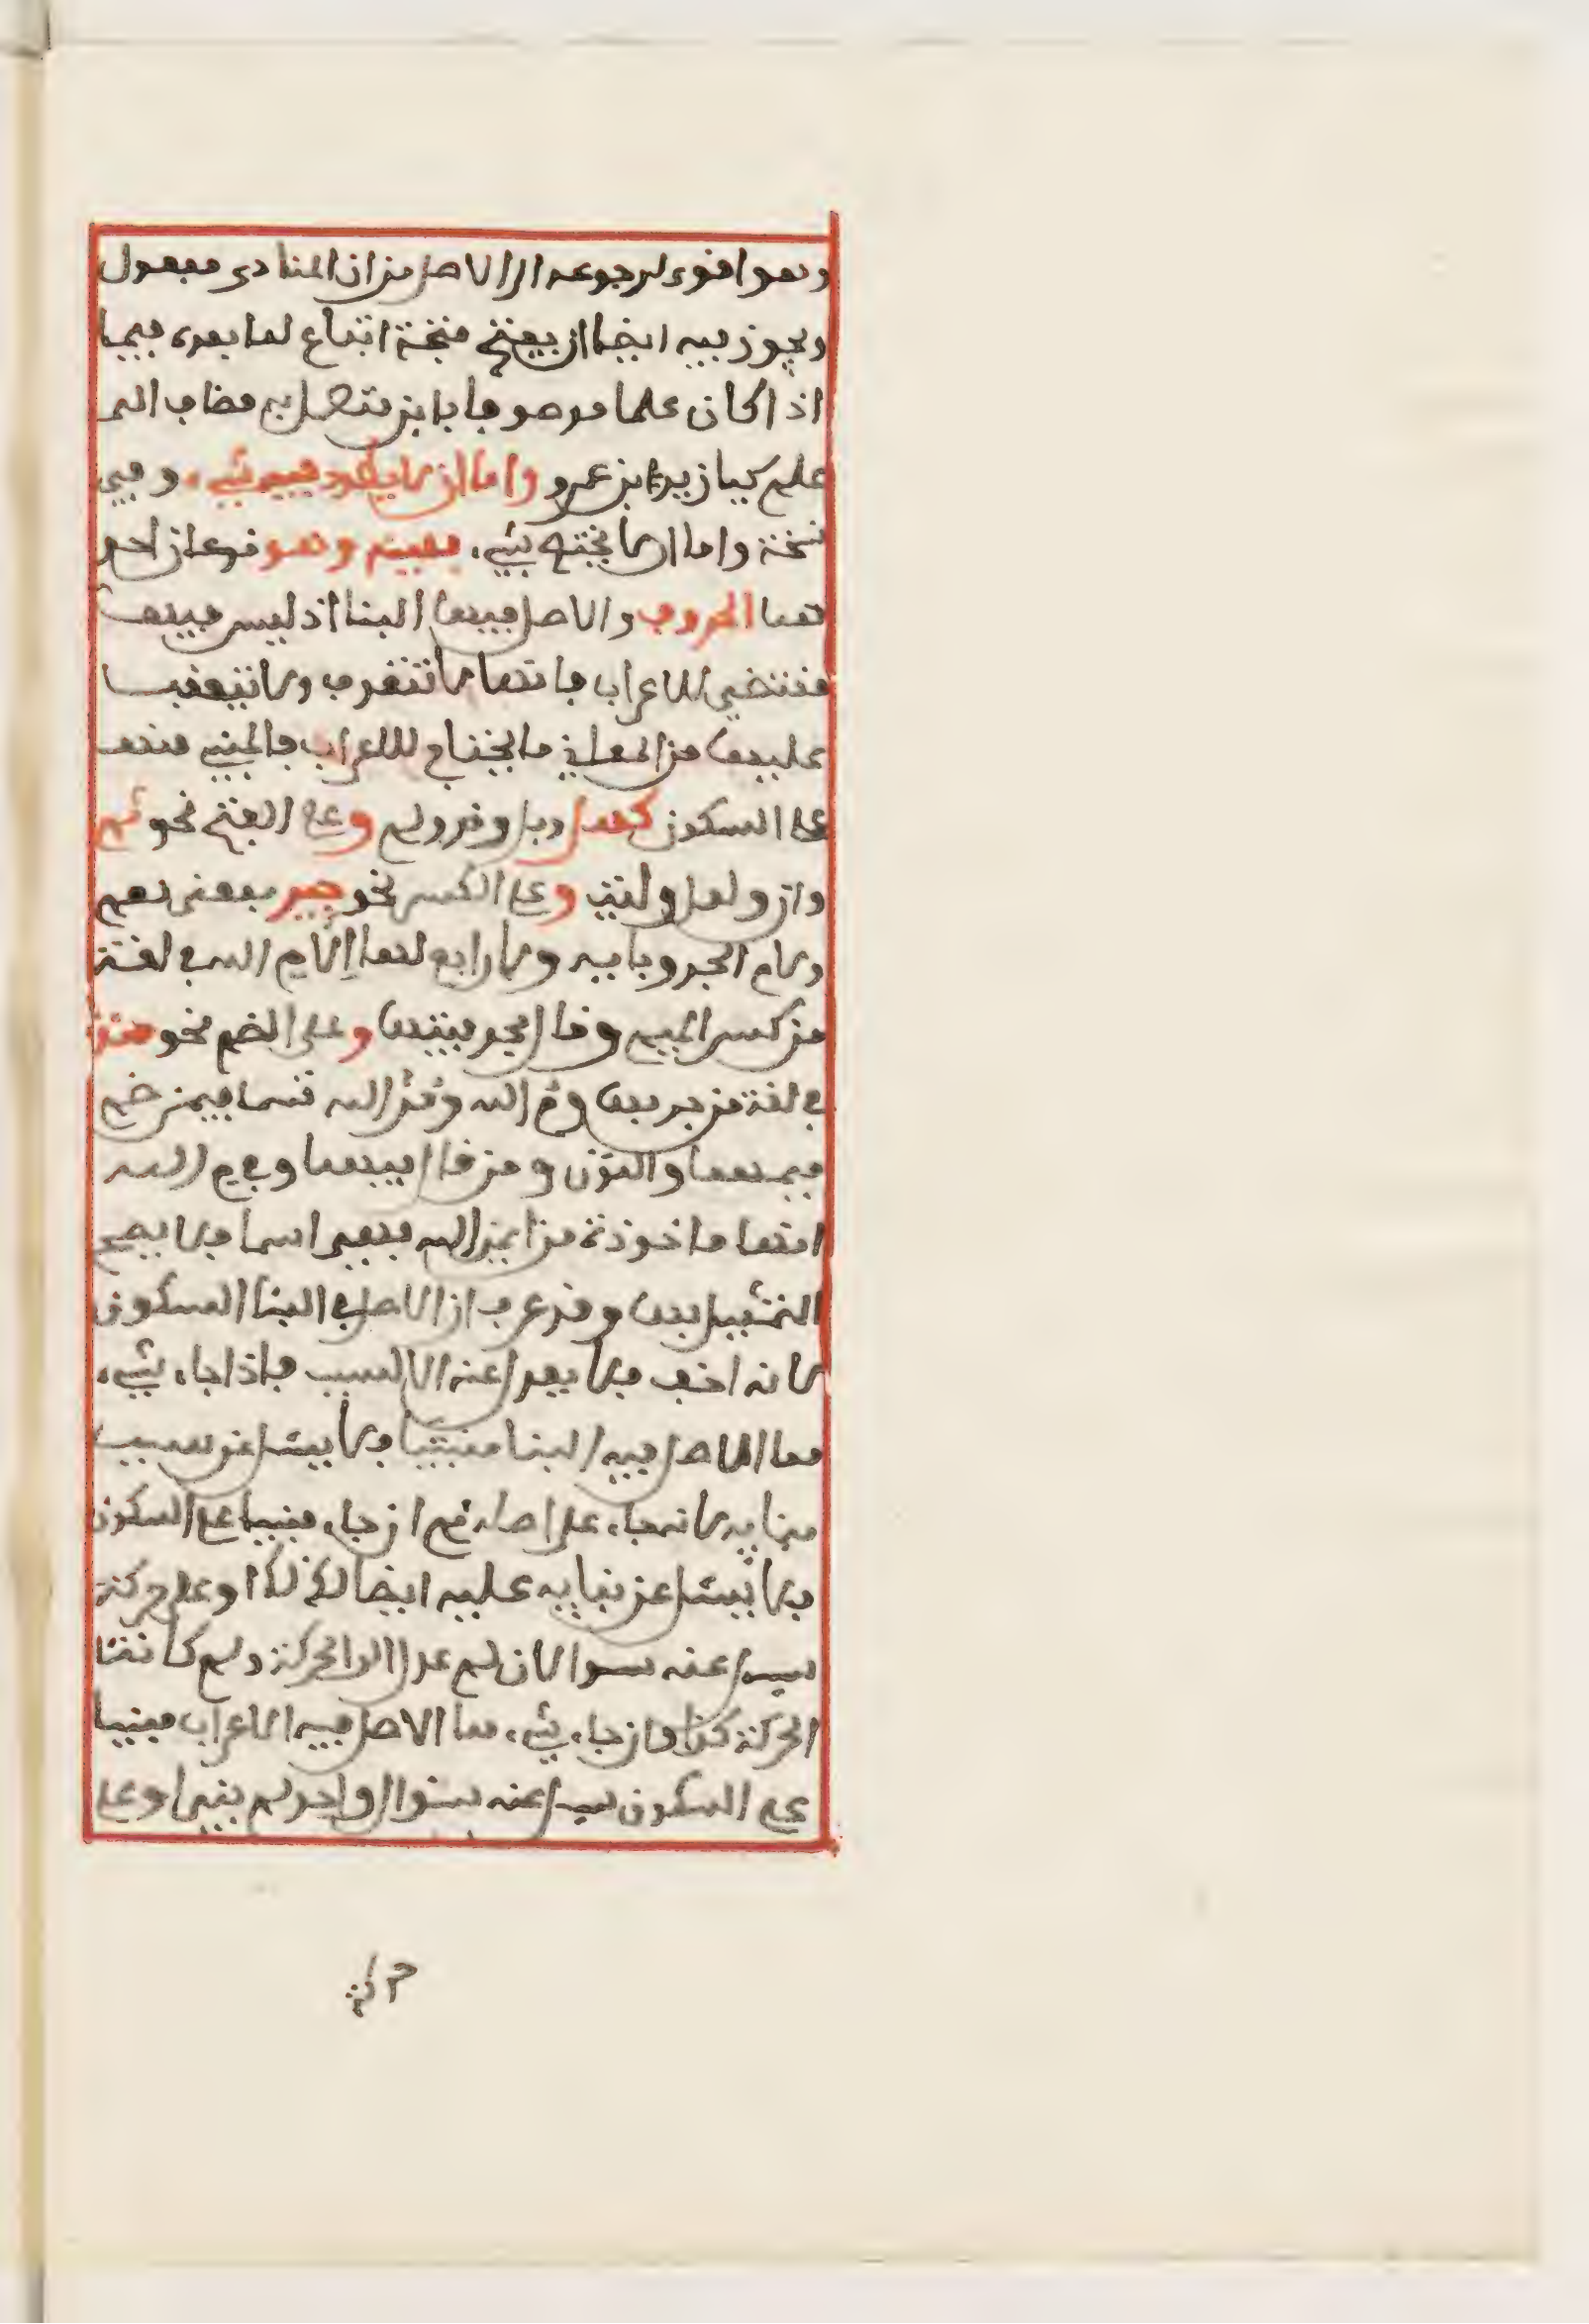 وهو اقوى لرجوعه الى الاصل من ان المنادى مفعول
ويجوز فيه ايضا ان يفتح فتحة اتباع لما بعده فيما
اذا كان علما موصوفا بابن متصل به مضاف الى
علم كيا زيد ابن عمرو واما ان لا يطرد فيه شيء، وفي
نسخة واما ان لا يختص بشيء، بعينه وهو نوعان احد
هما الحروف والاصل فيها البنا اذ ليس فيها
مقتضي للاعراب فانها لا تتصرف ولا يتعقب
عليها من المعاني ما يحتاج للاعراب فالمبني منها
على السكون كهل وبل وقد ولم وعلى الفتح نحو ثم
وان ولعل وليت وعلى الكسر نحو جير بمعنى نعم
ولام الجر وبايه ولا رابع لها الا م الله في لغة
من كسر الميم وقال بحرفيتها وعلى الضم نحو منذ
في لغة من جر بها وم الله ومن الله قسما فيمن ضم
ميمهما والنون ومن قال انهما وفي م الله
انها ماخوذة من ايمن الله فهي اسما فلا يصح
التمثيل بها وقد عرف ان الاصل في البنا السكون
لانه اخف فلا يعدل عنه الا لسبب فاذا جاء شيء،
مما الاصل فيه البنا مبنيا فلا يسئل عن سبب
بنايه لانه جاء على اصله ثم ان جاء مبنيا على السكون
فلا يسئل عن بنايه عليه ايضا لذلك او على حركة
سيل عنه سوالان لم عدل الى الحركة ولم كانت
الحركة كذا وان جاء شيء، مما الاصل فيه الاعراب مبنيا
على السكون سيل عنه سوال واحد لم بني او على
حركة